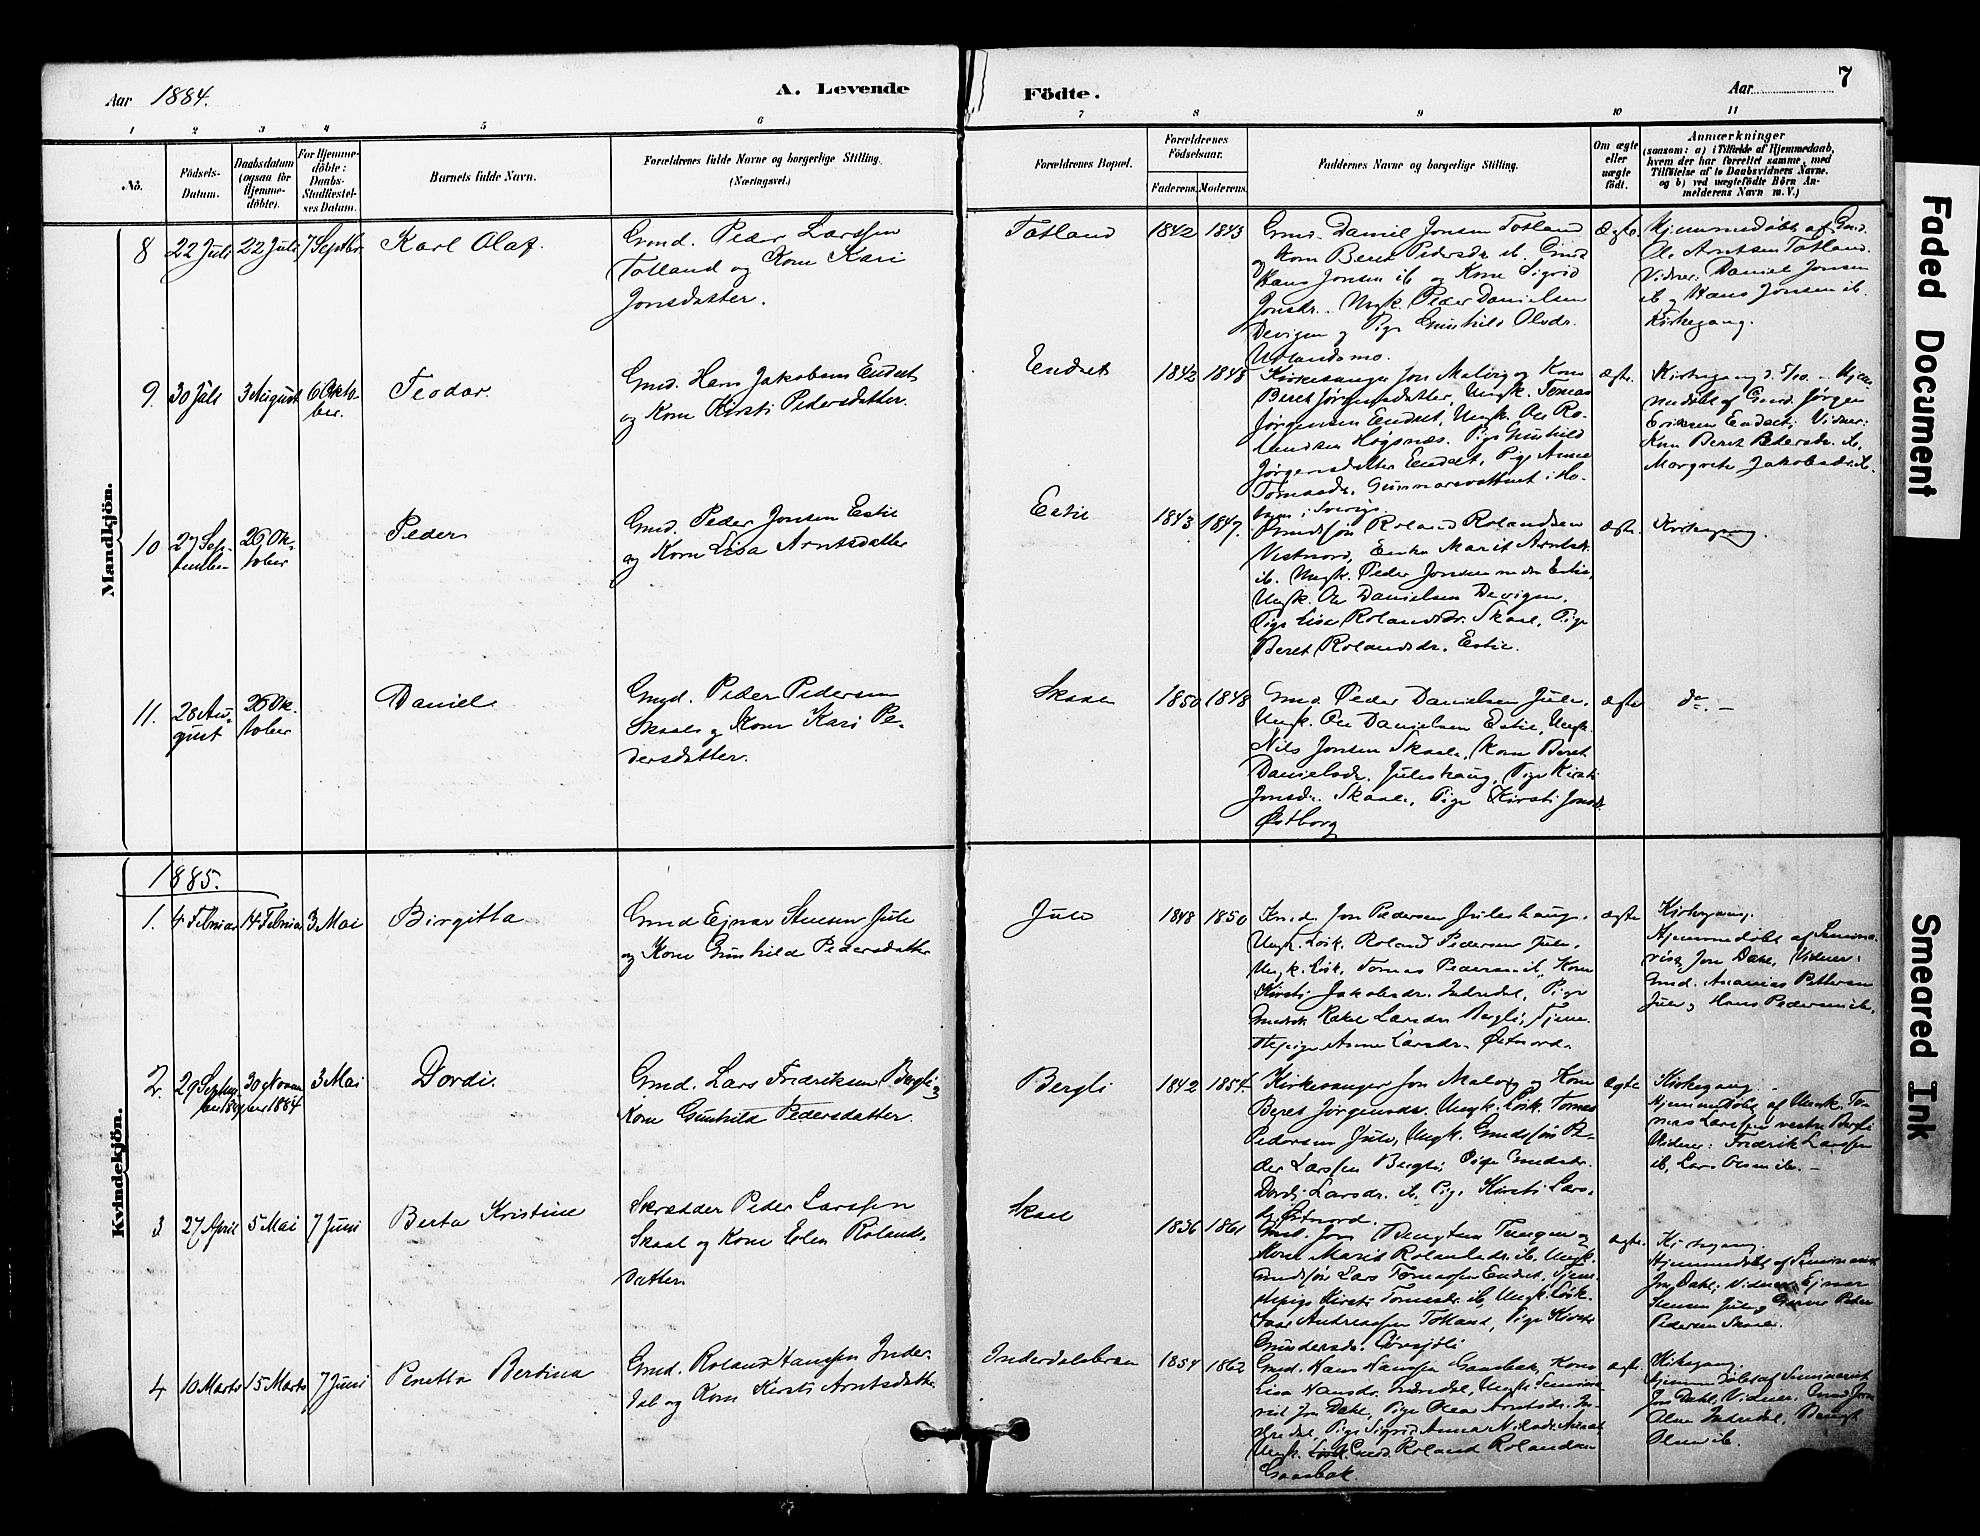 Aar 1884.
A. Levende
Födte.
Aar
7
1 2 3 4 5 6 7 8 9 10 11
No.
Födsels-
Datum.
Daabsdatum
(ogsaa for
Hjemme-
döbte).
For Hjemme-
döbte:
Daabs-
Stadfæstel-
ses Datum.
Barnets fulde Navn.
Forældrenes fulde Navne og borgerlige Stilling.
(Næringsvei.)
Forældrenes Bopæl.
Forældrenes
Födselsaar.
Faderens. Moderens.
Faddernes Navne og borgerlige Stilling.
Om ægte
eller
uægte
født.
Anmærkninger
(saasom: a) i Tilfælde af Hjemmedaab,
hvem der har forrettet samme, med
Tilføielse af to Daabsvidners Navne.
og b) ved uægtefödte Börn An-
melderens Navn m. V.)
Mandkjön.
8 22 Juli 22 Juli 7 Septbr. Karl Olaf.
Gmd. Peder Larssen
Totland og Kone Kari
Jonsdatter.
Totland 1842 1843
Gmd. Daniel Jonsen Totland
og Kone Beret Pedersdr. ib. Gmd
Hans Jonsen ib og Kone Sigrid
Jonsdr. Ungk. Peder Danielsen
Devigen og Pige Gunhild Olsdr.
ægte
Hjemmedöbt af Gmd.
Ole Arntsen Totland.
Vidner: Daniel Jonsen
ib og Hans Jonsen ib.
Kirkegang.
9. 30 Juli 3 August 6 Okto-
ber.
Teodor.
Gmd. Hans Jakobsen Endest
og Kone Kirsti Pedersdatter.
Endest 1842 1848
Kirkesanger Jon Malvig og Kone
Beret Jørgensdatter, Ungk. Tomas
Jørgensen Endest, Ungk. Ole Ro-
landsen Høgsnæs. Pige Gunhild
Jørgensdatter Endest, Pige Anne
Tomasdr. Gunnarsvattnet i Ho-
ægte.
Kirkegang d. 5/10. Hjem-
medöbt af Gmd. Jørgen
Eriksen Endest; Vidner:
Kone Beret Pedersdr. ib.
Margrete Jakobsdr. ib.
10 27 Sep-
tember
26 Ok-
tober
Peder
Gmd. Peder Jonsen Estil
og Kone Lisa Arntsdatter
Estil 1843 1847.
Gmdsøn Roland Rolandsen
Vestnord, Enke Marit Arntsdr.
ib. Ungk. Peder Jonsen nedre Estil,
Ungk. Ole Danielsen Devigen,
Pige Lisa Rolandsdr. Skale, Pige
Beret Rolandsdr. Estil.
ægte.
Kirkegang.
11. 28 Au-
gust
26 Ok-
tober
Daniel
Gmd. Peder Pedersen
Skaale og Kone Kari Pe-
dersdatter.
Skaale 1850 1848
Gmd. Peder Danielsen Jule,
Ungk. Ole Danielsen Estil, Ungk.
Nils Jonsen Skaale, Kone Beret
Danielsdr. Juleshaug, Pige Kirsti
Jonsdr. Skaale, Pige Kirsti Jonsdr.
Østborg
ægte
do. –
Kvindekjön.
1885.
1. 4 Februar 14 Februar 3 Mai Birgitta
Gmd Ejnar Stensen Jule
og Kone Gunhild Pedersdatter
Jule 1848 1850
Gmd. Jon Pedersen Juleshaug,
Ungk. Løsk. Roland Pedersen Jule,
Ungk. Løsk. Tomas Pedersen ib., Kone
Kirsti Jakobsdr. Inderdal, Pige
Gmdsdr. Rakel Larsdr Bergli, Tjene-
stepige Anne Larsdr. Østnord.
ægte
Kirkegang.
Hjemmedöbt af Semina-
rist Jon Dahl, Vidner:
Gmd. Ananias Pettersen
Jule og Hans Pedersen ib.
2. 29 Septem-
ber 1884
30 Novem-
ber 1884
3 Mai Dordi.
Gmd. Lars Fredriksen Bergli og
Kone Gunhild Pedersdatter.
Bergli 1842 1854
Kirkesanger Jon Malvig og Kone
Beret Jørgensdr. Ungk. Løsk. Tomas
Pedersen Jule, Ungk. Gmdssøn Pe-
der Larssen Bergli, Pige Gmdsdr.
Dordi Larsdr. ib, Pige Kirsti Lars-
dr. Østnord.
ægte
Kirkegang.
Hjemmedöbt af Ungk. To-
mas Larssen vestre Bergli
Vidner: Fredrik Larssen
ib, Lars Olsen ib. –
3 27 April 5 Mai 7 Juni Berta Kristine
Skrædder Peder Larssen
Skaal og Kone Elen Rolands-
datter.
Skaal 1856 1861
Gmd. Jon Bengtsen Tungen og
Kone Marit Rolandsdr. ib, Ungk.
Gmdssøn Lars Tomassen Endest, Tjene-
stepige Kirsti Tomasdr. ib, Ungk. Løsk.
Isak Andreassen Totland, Pige Kirsti
Gundersdr.
ægte.
Kirkegang.
Hjemmedöbt af Seminarist
Jon Dahl; Vidner: Ejnar
Stensen Jule og Peder
Pedersen Skaale.
4 10 Marts 15 Marts 7 Juni Penetta Bertina
Gmd. Roland Hanssen Inder-
dal og Kone Kirsti Arntsdatter.
Inderdalsbran 1854 1862
Gmd. Hans Hanssen Gaasbak, Kone
Lisa Hansdr. Inderdal, Ungk. Semina-
rist Jon Dahl, Pige Olea Arntsdr. In-
derdal, Pige Sigrid Anna Nilsdr.
Ungk. Gmd. Roland Rolandsen
Gaasbak.
ægte.
Kirkegang.
Hjemmedöbt af Seminarist
Jon Dahl, Vidner: Gmd Jon
Olsen Inderdal, Bengt
Olsen ib.
Faded Document
Smeared Ink